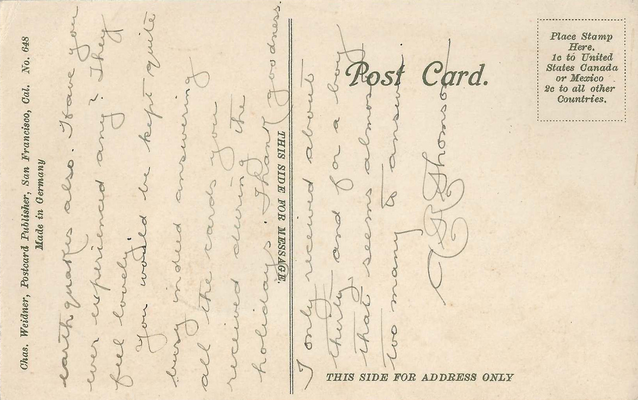 Chas. Weidner, Postcard Publisher, San Francisco, Cal. No. 648
Made in Germany
earthquakes also. Have you
ever experienced any? They
feel lovely.
You would be kept quite
busy indeed answering
all the cards you
received during the
holidays. Thank goodness.
THIS SIDE FOR MESSAGE.
I only received about
thirty and for a boy
that seems almost
too many to answer
Thomson
Post Card.
Place Stamp
Here.
1c to United
States Canada
or Mexico
2c to all other
Countries.
THIS SIDE FOR ADDRESS ONLY